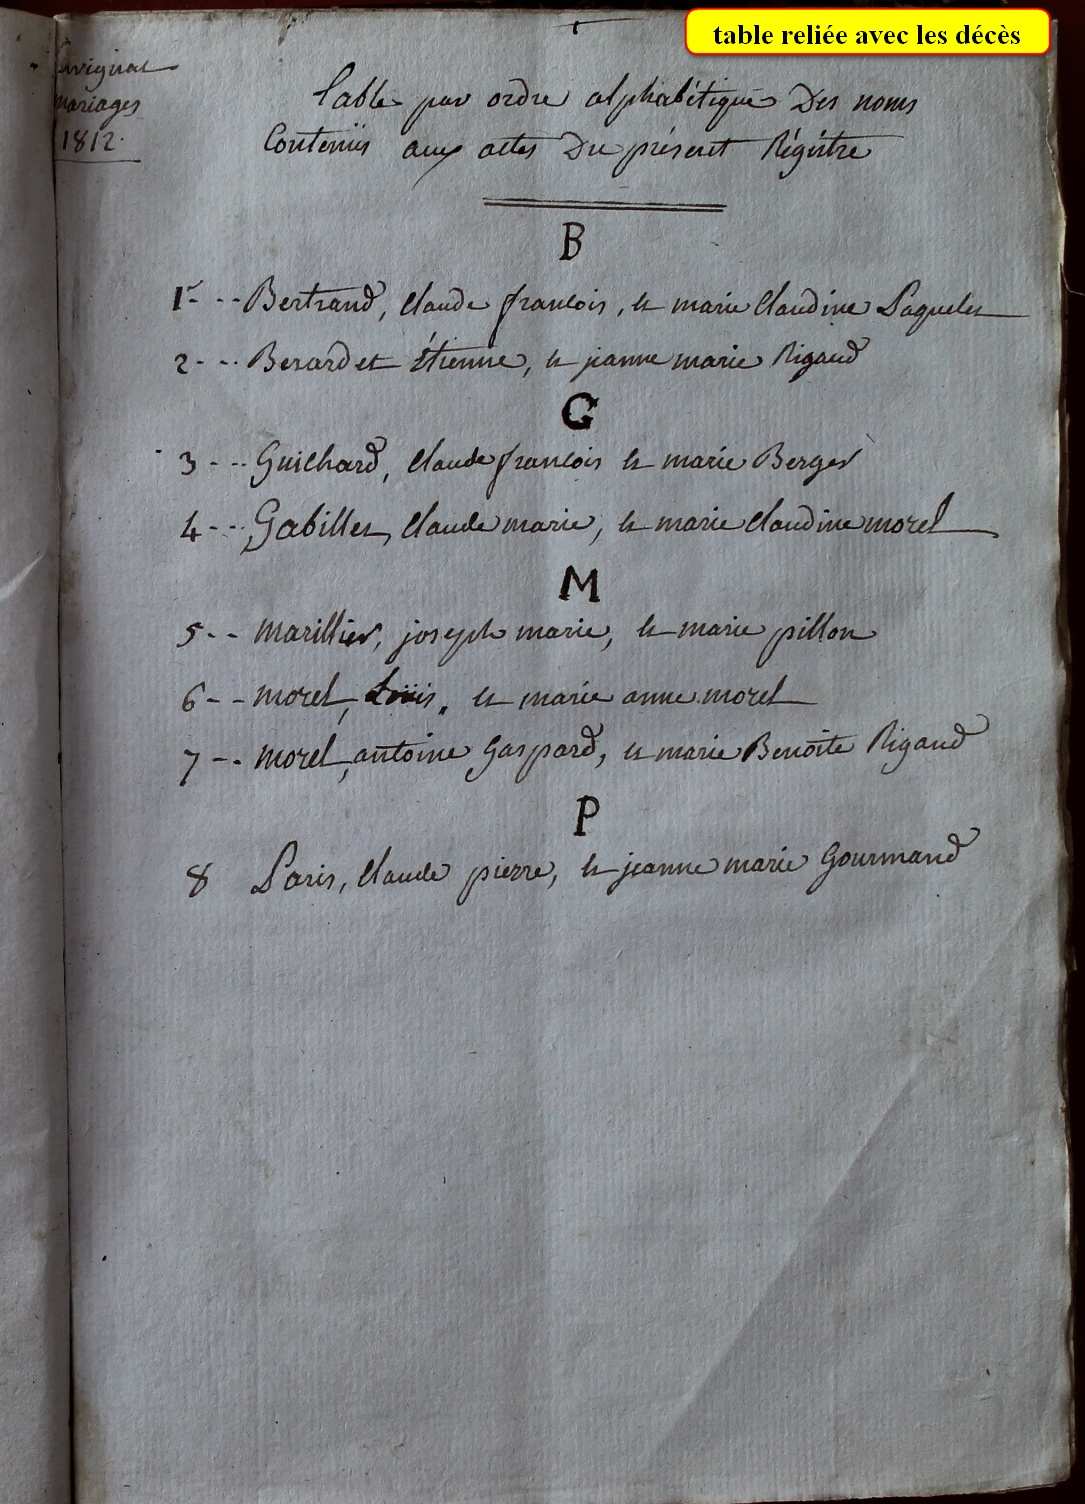 table reliée avec les décès
mariages
1812.
Table par ordre alphabétique Des noms
Contenüs aux actes Du présent Régistre
B
1 Bertrand, Claude françois, et marie Claudine Paquelet
2 Berardet Étienne, et jeanne marie Rigaud
G
3 Guichard, Claude françois et marie Berger
4 Gabillet, Claude marie, et marie Claudine morel
M
5 Marillier, joseph marie, et marie pillon
6 morel, Loüis, et marie anne morel
7 morel, antoine Gaspard, et marie Benoite Rigaud
P
8 Paris, Claude pierre, et jeanne marie Gourmand